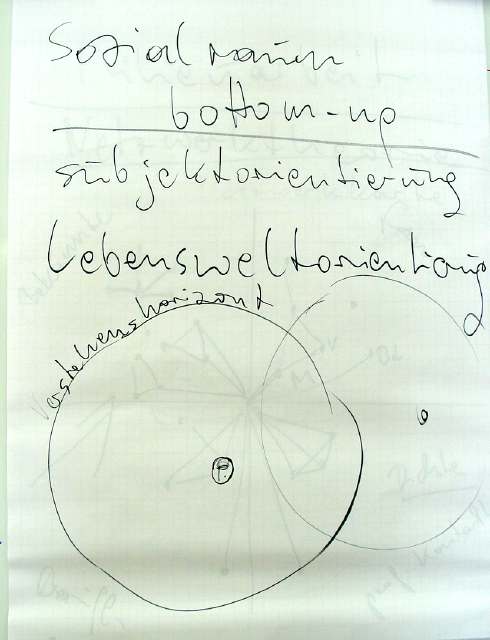 Sozialraum
bottom-up
subjektorientierung
Lebensweltorientierung
Verstehenshorizont
P.